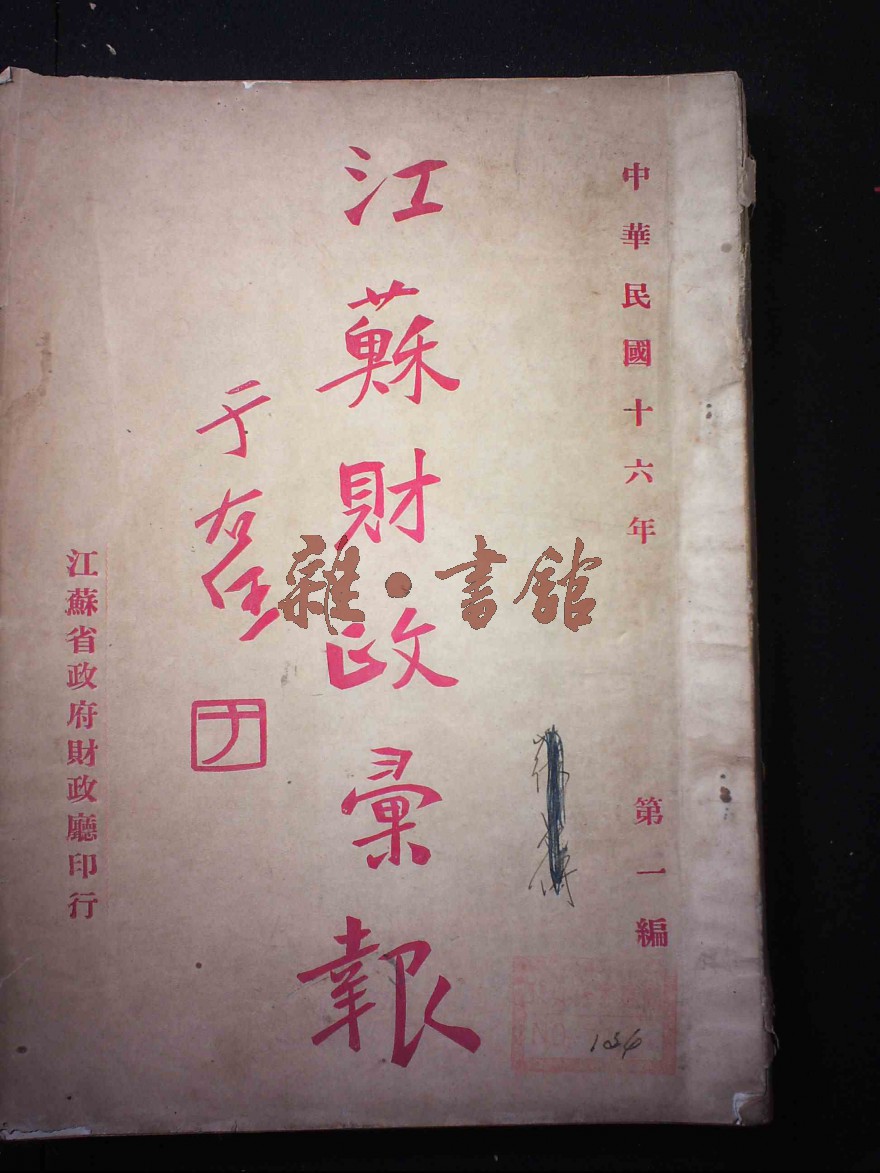 中華民國十六年
第一編
江蘇財政彙報
于右任
江蘇省政府財政廳印行
雜·書館
134